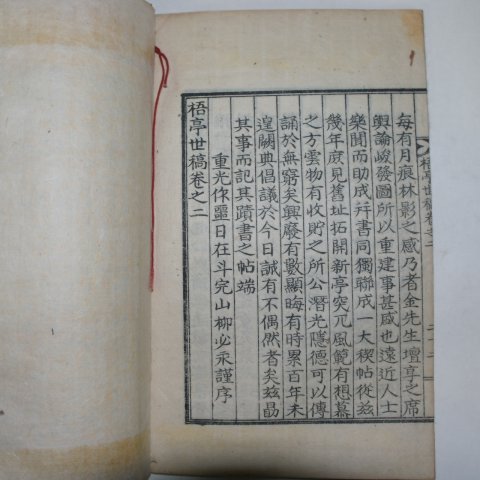 每有月痕林影之感乃者金先生壇享之席
輿論峻發圖所以重建事甚盛也遠近人士
樂聞而助成幷書同獨聯成一大稧帖從玆
幾年度見舊址拓開新亭突兀風範有想慕
之方雲物有收貯之所公潛光隱德可以傳
誦於無窮矣興廢有數顯晦有時累百年未
遑闕典倡議於今日誠有不偶然者矣玆曷
其事而記其蹟書之帖端
重光作噩日在斗完山柳必永謹序
梧亭世稿卷之二
梧亭世稿卷之二